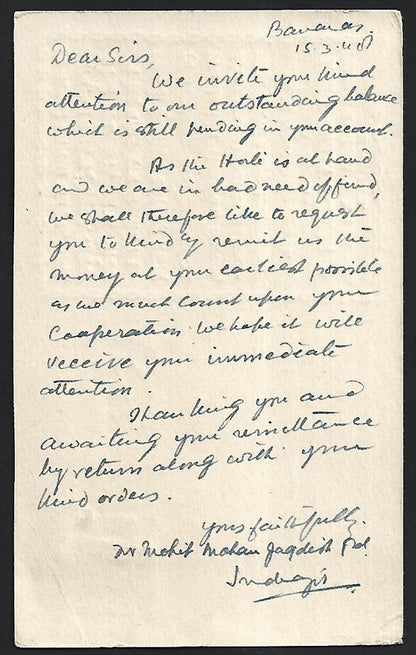 Banaras
15.3.48
Dear Sirs,
We invite your kind
attention to our outstanding balance
which is still pending in your account.
As the Holi is at hand
and we are in bad need of fund,
we shall therefore like to request
you to kindly remit us the
money at your earliest possible
as we much count upon your
cooperation. We hope it will
receive your immediate
attention.
Thanking you and
awaiting your remittance
by return along with your
kind orders.
Yours faithfully.
Mohit Mohan Jagdish Pd.